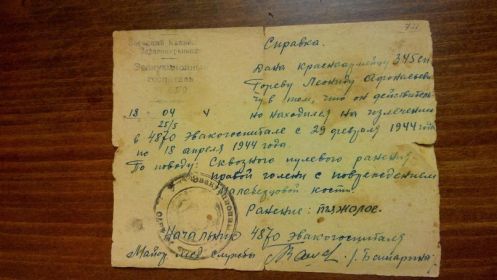 Справка.
Эвакуационный
госпиталь
Дана красноармейцу 345 сп
Гореву Леониду Афонасьеви
чу в том, что он действитель
18 04
но находился на излечении
25/5
в 4870 Эвакогоспитале с 29 февраля 1944 года
по 18 апреля 1944 года.
По поводу: Сквозного пулевого ранения
правой голени с повреждением
Малоберцовой кости.
Ранение: тяжолое.
Начальник 4870 Эвакогоспиталя
Майор мед службы